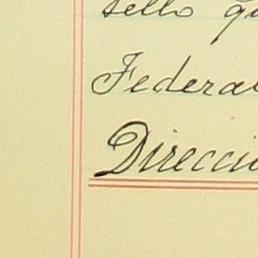 sello qu
Federal
Direcció